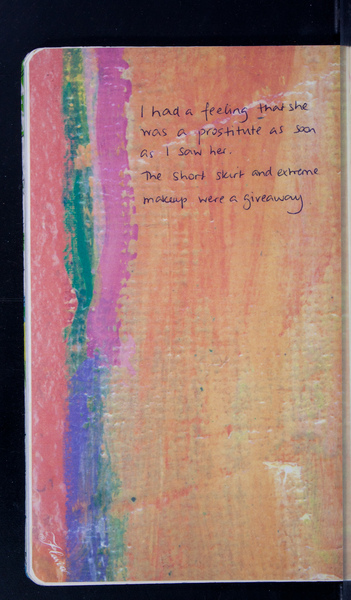 I had a feeling that she
was a prostitute as soon
as I saw her.
The short skirt and extreme
makeup were a giveaway